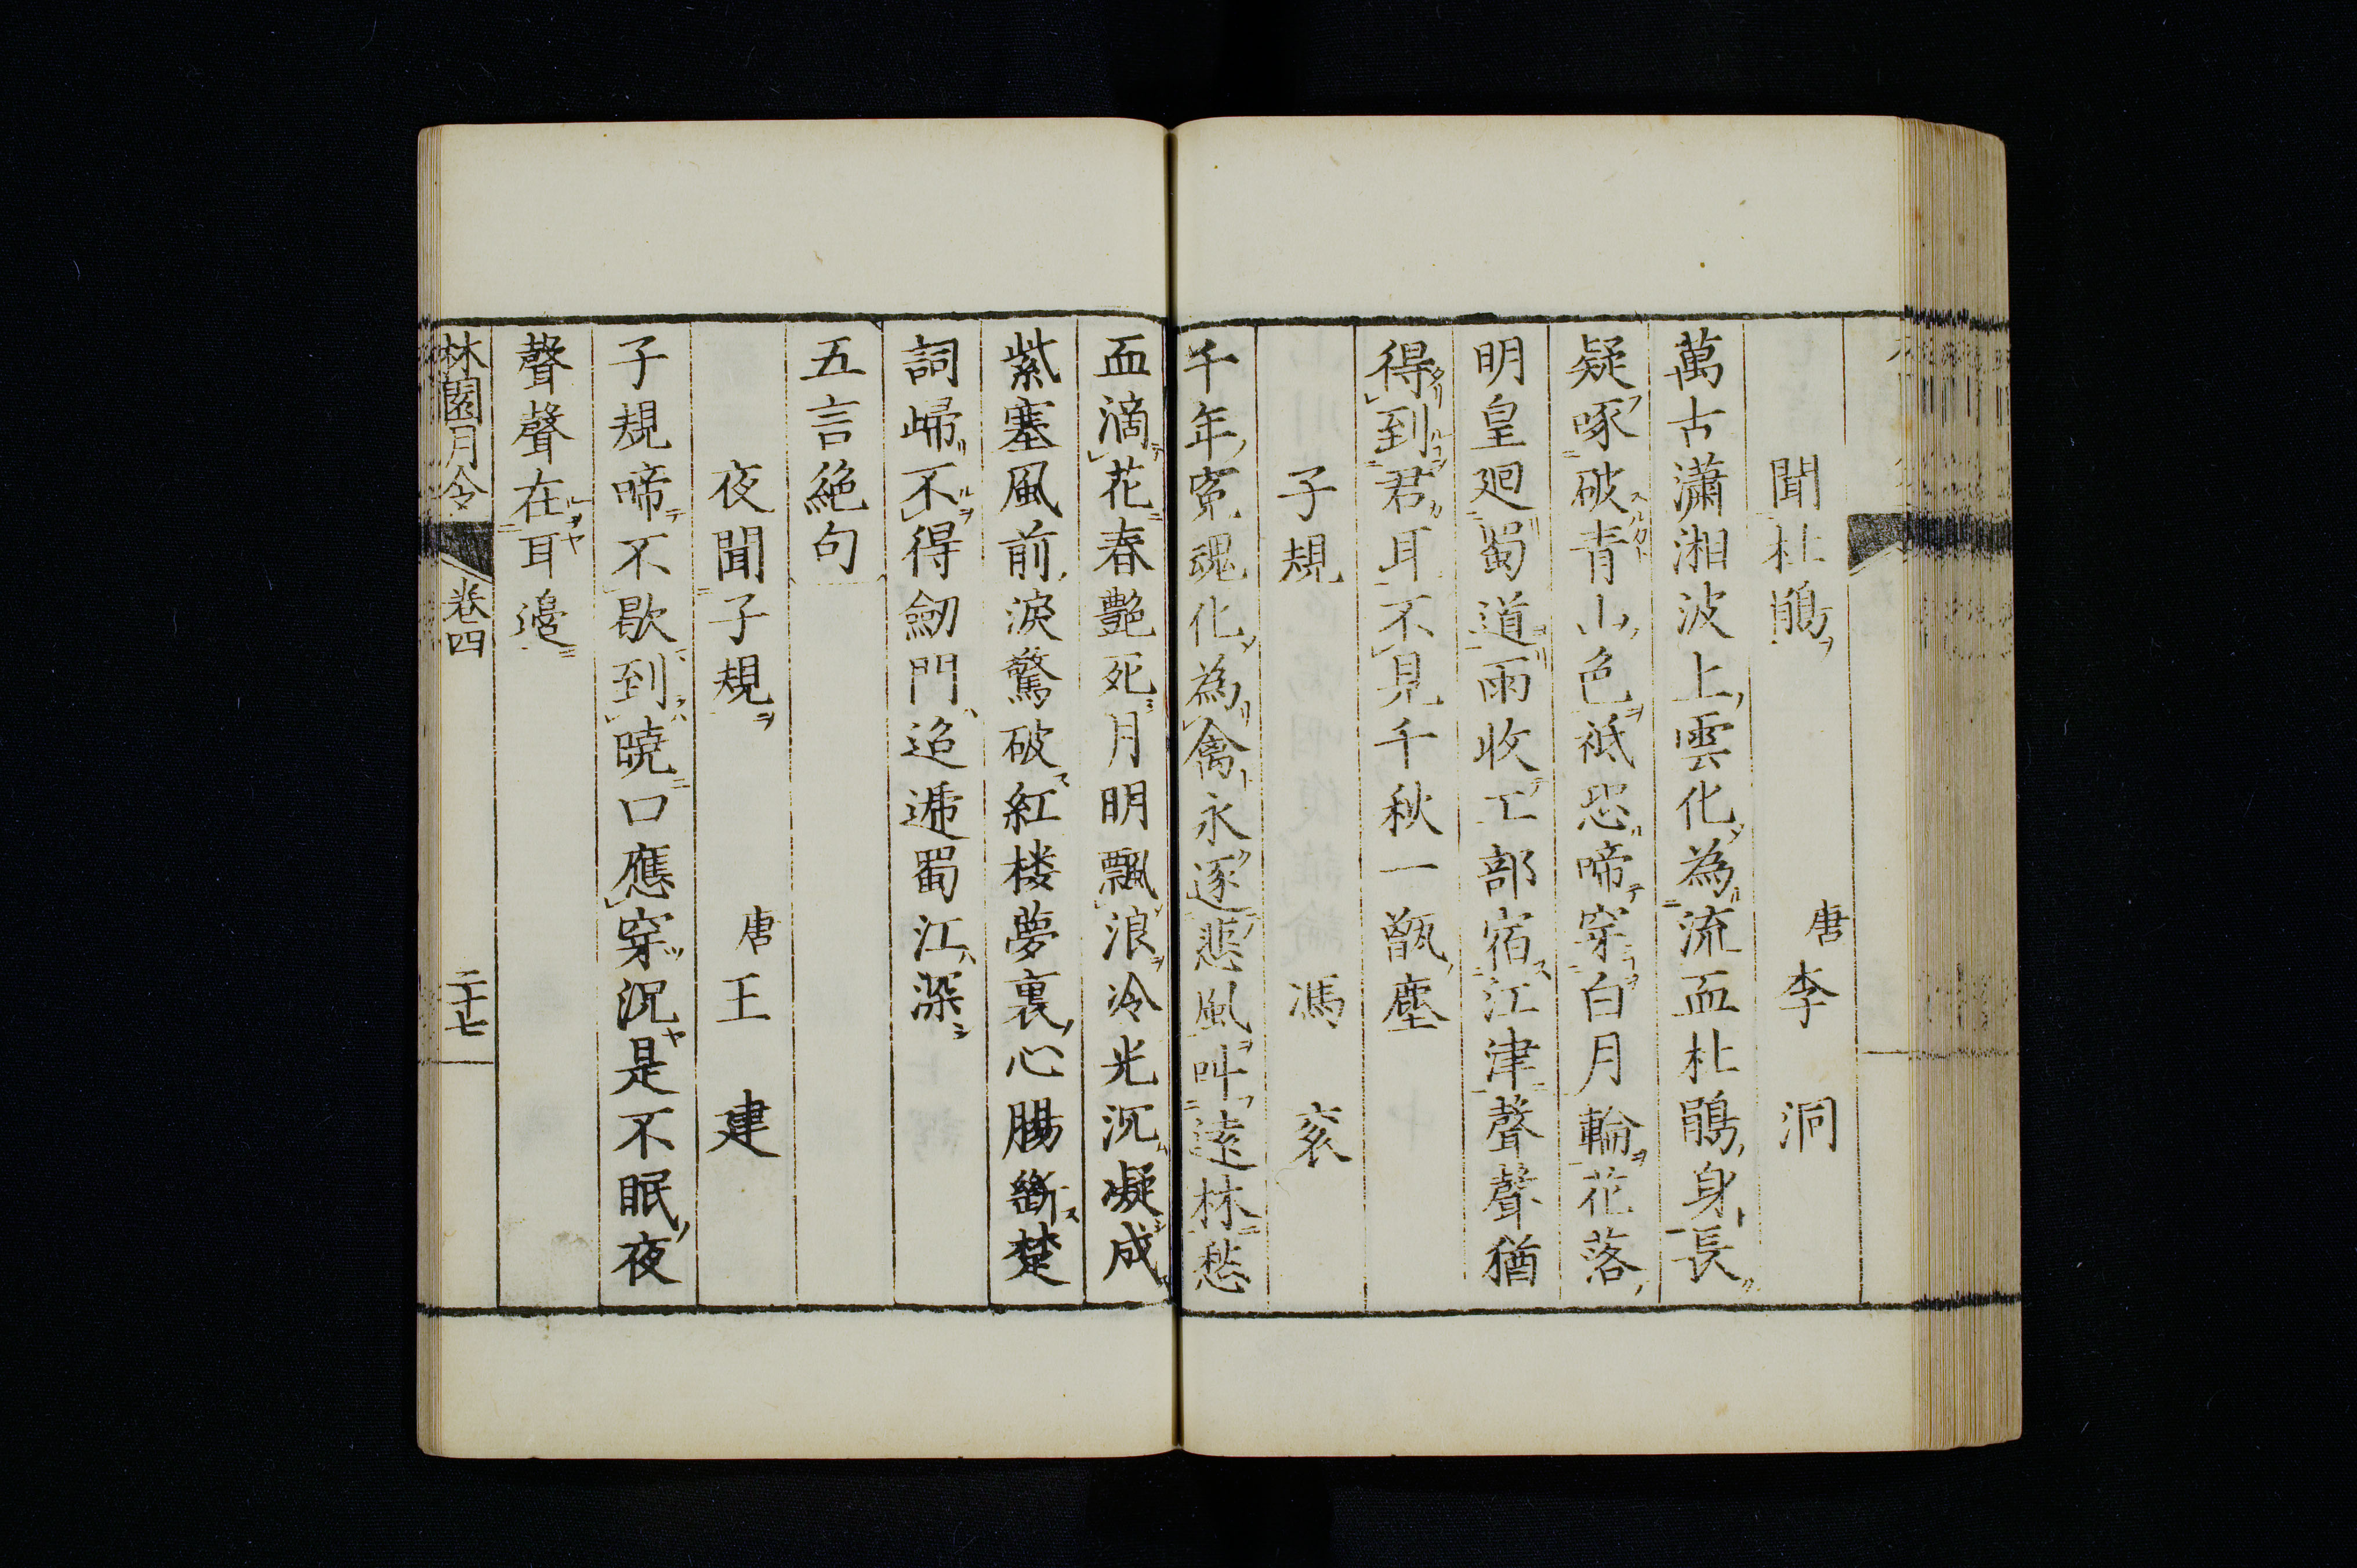 聞杜鵑 唐李洞
萬古瀟湘波上雲化為流血杜鵑身長
疑啄破青山色祗恐啼穿白月輪花落
明皇廻蜀道雨收工部宿江津聲聲猶
得到君耳不見千秋一甑塵
子規 馮衮
千年寃魂化為禽永逐悲風叫遠林愁
血滴花春艷死月明飄浪冷光沉凝成
紫塞風前淚驚破紅楼夢裏心腸斷楚
詞歸不得劒門迢遞蜀江深
五言絶句
夜聞子規 唐王建
子規啼不歇到曉口應穿況是不眠夜
聲聲在耳邊
林園月令 卷四 二十七